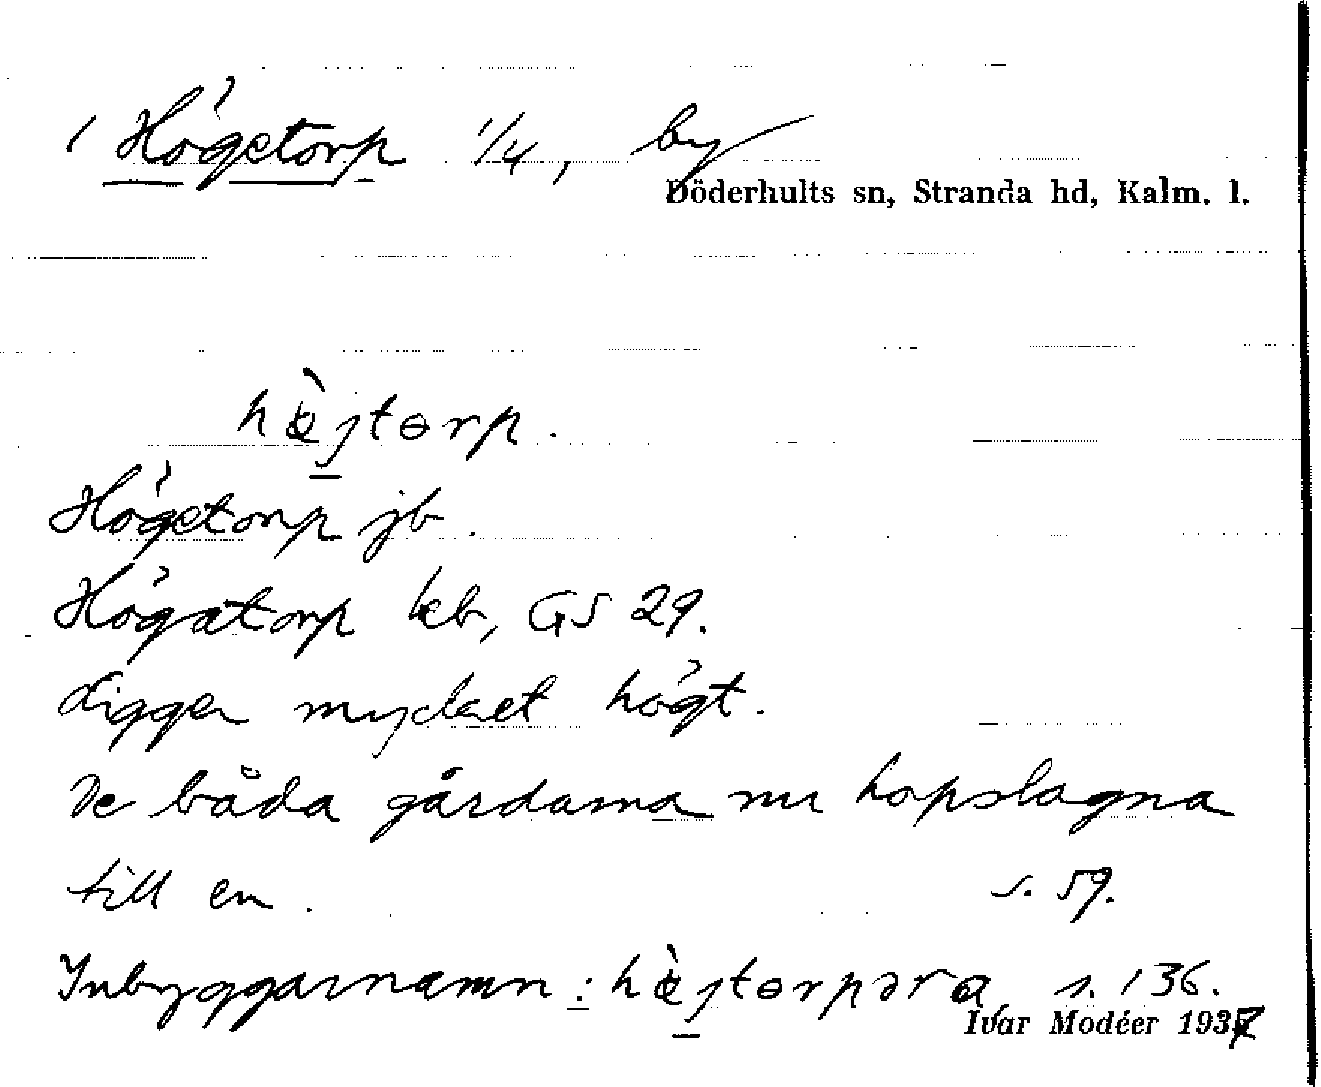 1 Högetorp 1/4, by
Döderhults sn, Stranda hd, Kalm. l.
hæ̀jtorp.
Högetorp jb.
Högatorp kb, GS 29.
Ligger mycket högt.
De båda gårdarna nu hopslagna
till en. s. 59.
Inbyggarnamn: hæ̀jtorpəra s. 136.
Ivar Modéer 1937